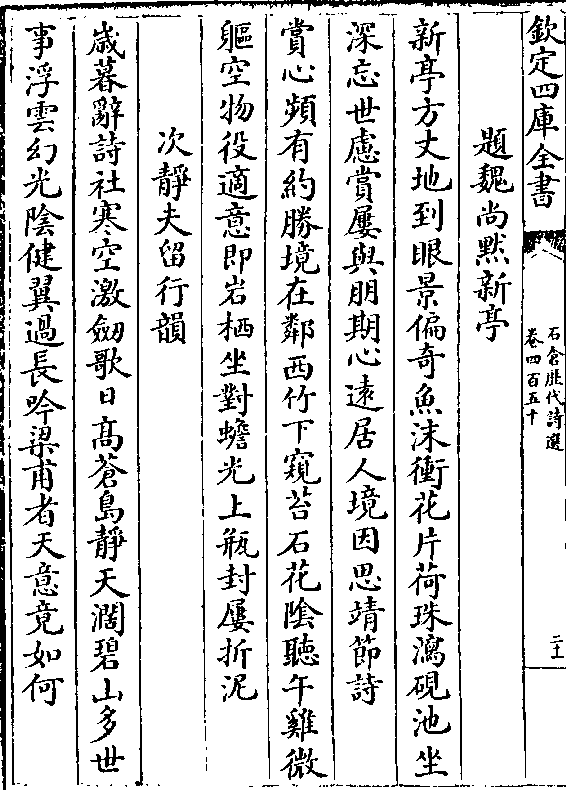 欽定四庫全書
石倉歷代詩選
卷四百五十
二十一
題魏尚黙新亭
新亭方丈地到眼景偏竒魚沫衝花片荷珠瀉硯池坐
深忘世慮賞屢與朋期心逺居人境因思靖節詩
賞心頻有約勝境在鄰西竹下窺苔石花陰聽午雞微
軀空物役適意即岩栖坐對蟾光上瓶封屢折泥
次静夫留行韻
嵗暮辭詩社寒空激劒歌日髙蒼島静天濶碧山多世
事浮雲幻光陰健翼過長吟梁甫者天意竟如何